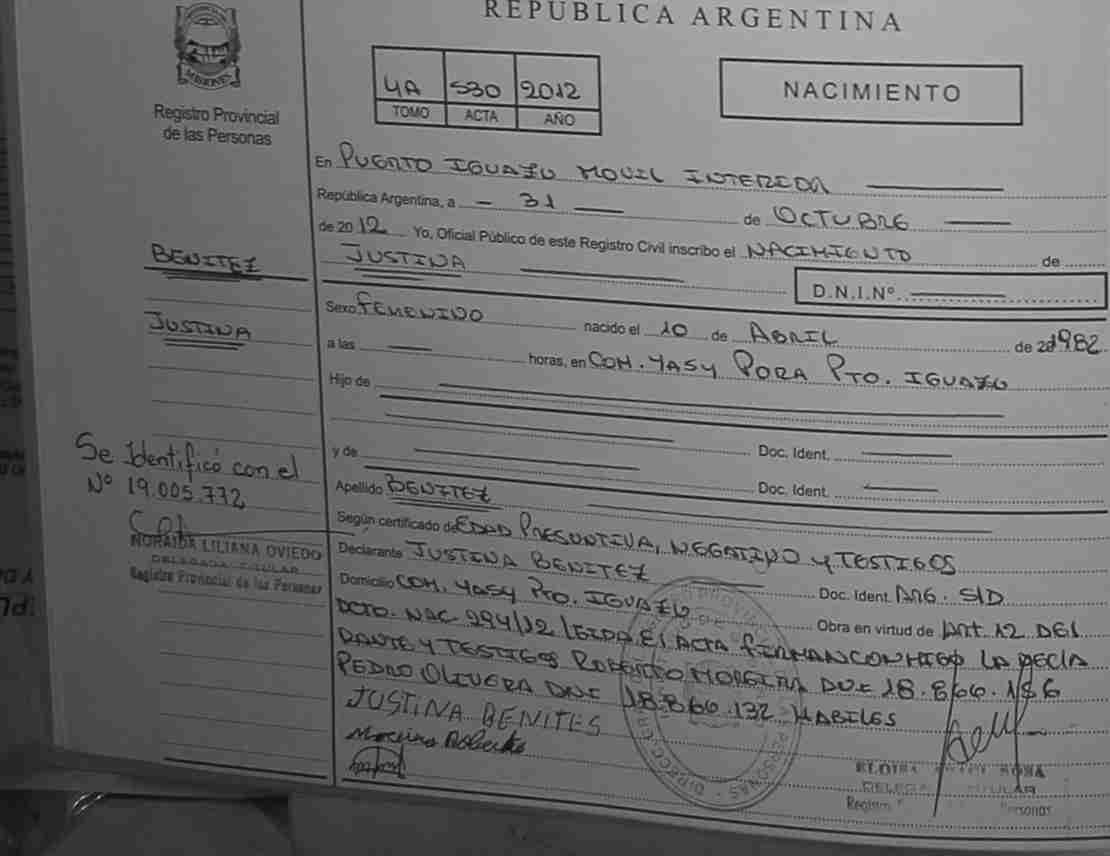 REPUBLICA ARGENTINA
MISIONES
Registro Provincial
de las Personas
4A 530 2012
TOMO ACTA AÑO
NACIMIENTO
En PUERTO IGUAZU MOVIL INTERIOR
República Argentina, a - 31 de OCTUBRE
de 2012 Yo, Oficial Público de este Registro Civil inscribo el NACIMIENTO de
BENITEZ
JUSTINA
D.N.I.Nº
JUSTINA
Sexo FEMENINO nacido el 10 de ABRIL de 1982
a las horas, en COM. YASY PORA PTO. IGUAZU
Hijo de
Doc. Ident.
y de Doc. Ident.
Se Identificó con el
Nº 19.005.772
NORAIDA LILIANA OVIEDO
DELEGADA TITULAR
Registro Provincial de las Personas
Apellido BENITEZ
Según certificado de EDAD PRESUNTIVA, NEGATIVO y TESTIGOS
Declarante JUSTINA BENITEZ Doc. Ident. ARG. S/D
Domicilio COM. YASY PTO. IGUAZU Obra en virtud de ART 12 DEL
DCTO. NAC 294/12 LEIDA EL ACTA FIRMAN CONMIGO LA DECLA
RANTE Y TESTIGOS ROBERTO MOREIRA 18.866.186
PEDRO OLIVERA DNI 18.866.132 HABILES
JUSTINA BENITES
Roberto
ELOISA
TITULAR
Registro Personas